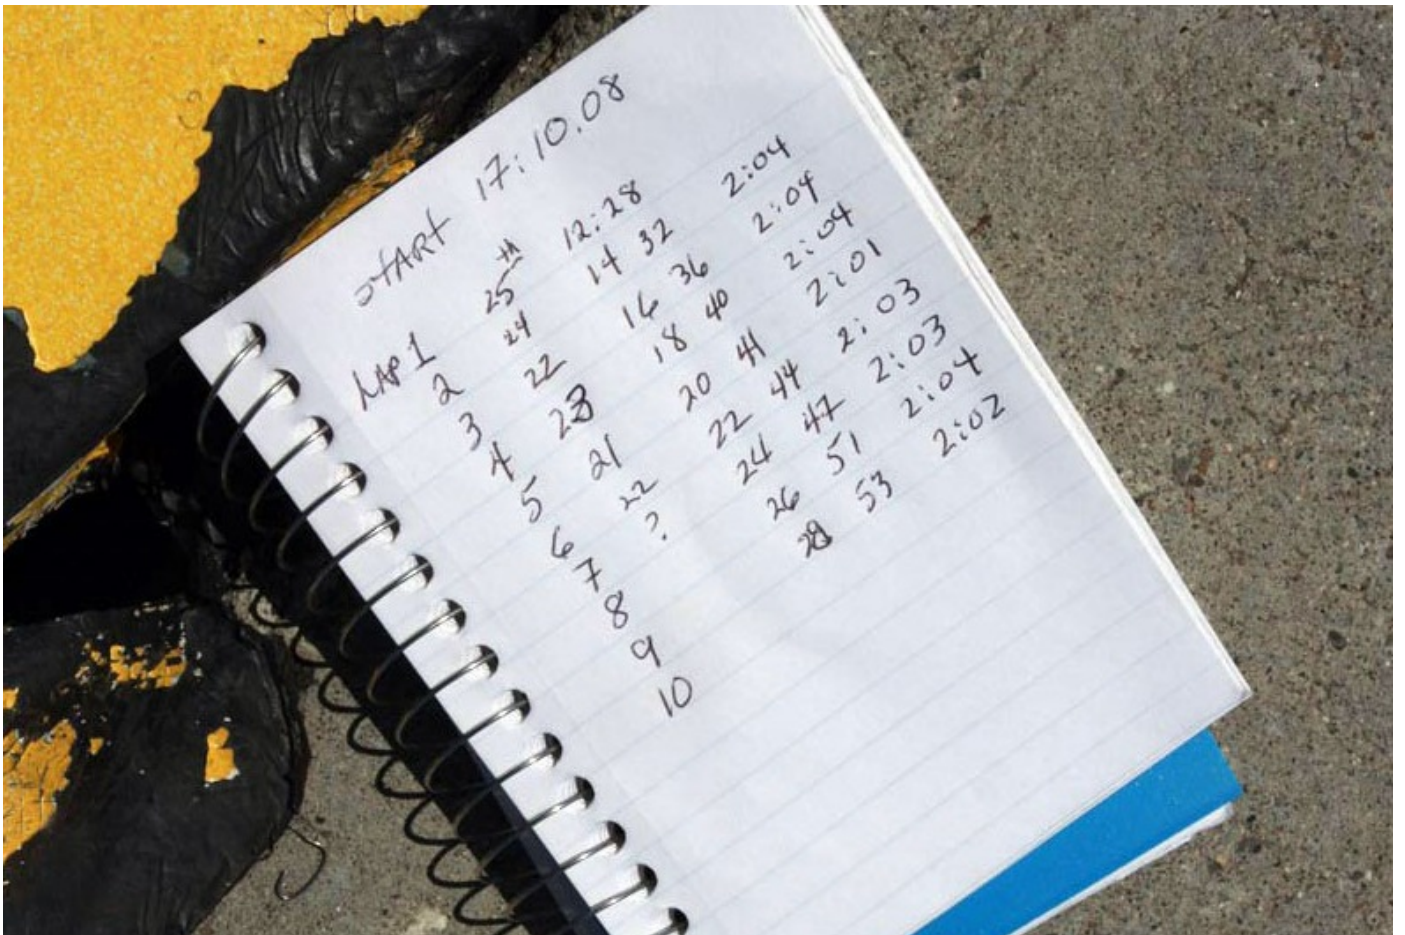 START 17:10.08
LAP 1 25th 12:28
2 24 14 32 2:04
3 22 16 36 2:04
4 23 18 40 2:04
5 21 20 41 2:01
6 22 22 44 2:03
7 ? 24 47 2:03
8 26 51 2:04
9 28 53 2:02
10